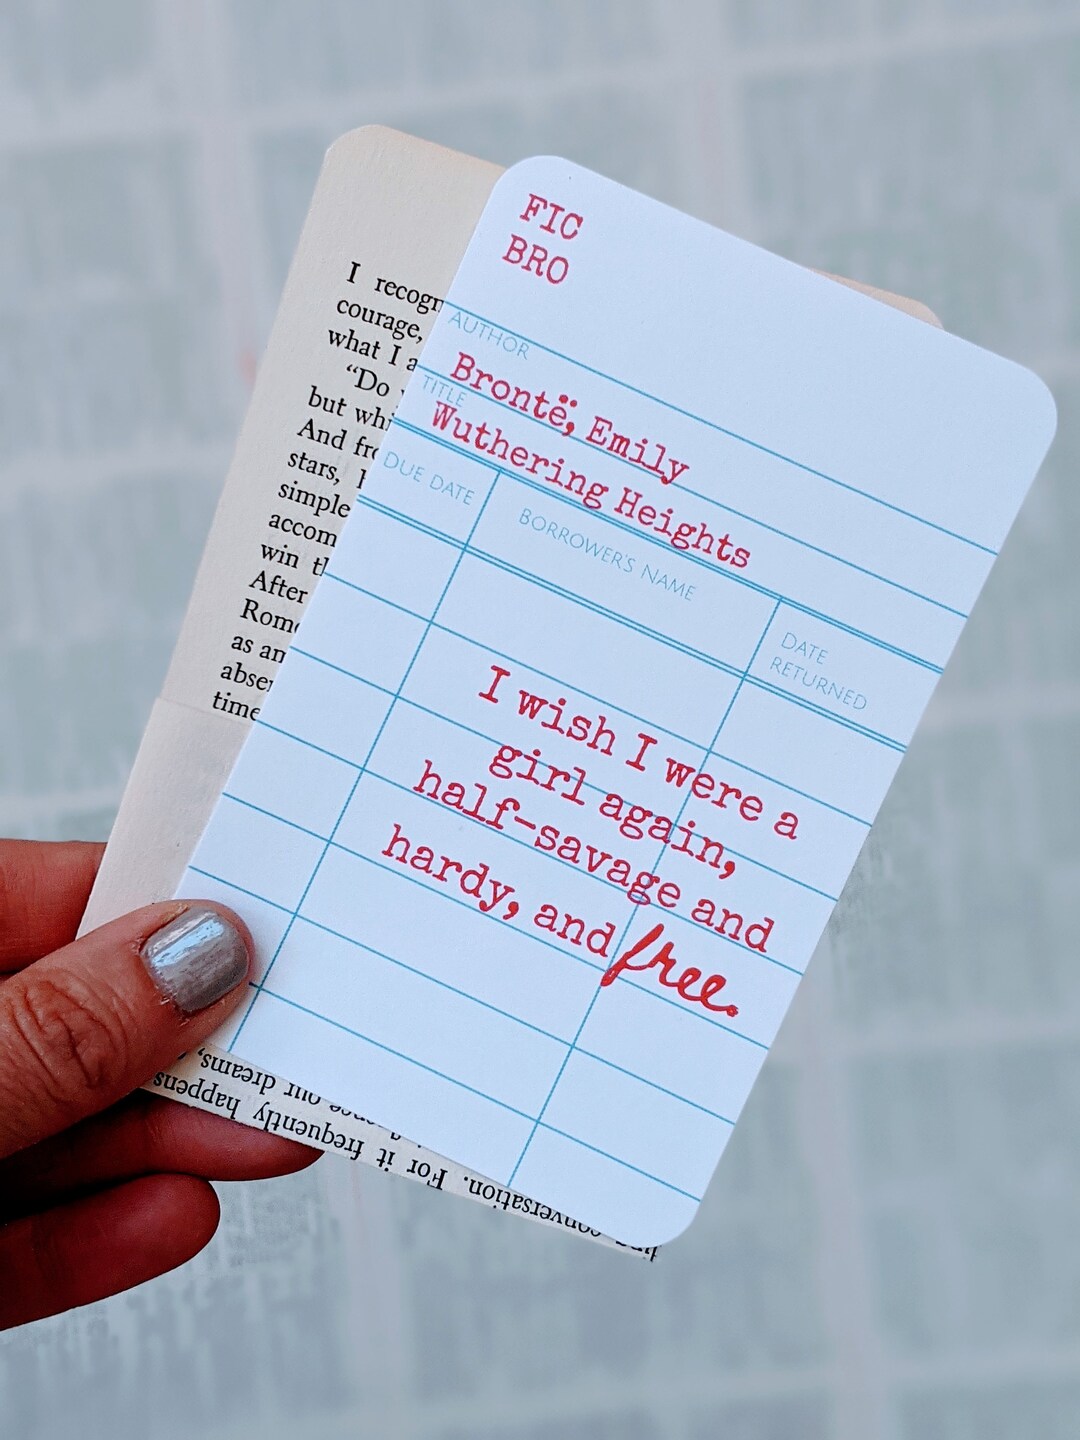 FIC
BRO
AUTHOR
Brontë, Emily
TITLE
Wuthering Heights
DUE DATE
BORROWER'S NAME
DATE
RETURNED
I wish I were a
girl again,
half-savage and
hardy, and free.
I
courage,
what I
“Do
but
And
stars,
simple
win
After
as
time
our dreams,
frequently happens
. For it